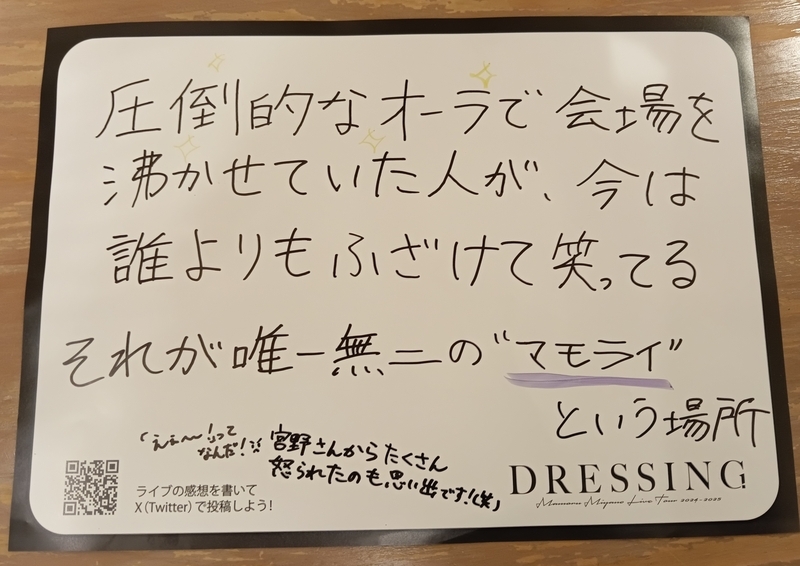 圧倒的なオーラで会場を
沸かせていた人が、今は
誰よりもふざけて笑ってる
それが唯一無二の"マモライ"
という場所
「ええ〜!って
なんだ!
宮野さんからたくさん
怒られたのも思い出です!(笑)
ライブの感想を書いて
X(Twitter)で投稿しよう!
DRESSING
Mamoru Miyano Live Tour 2024-2025